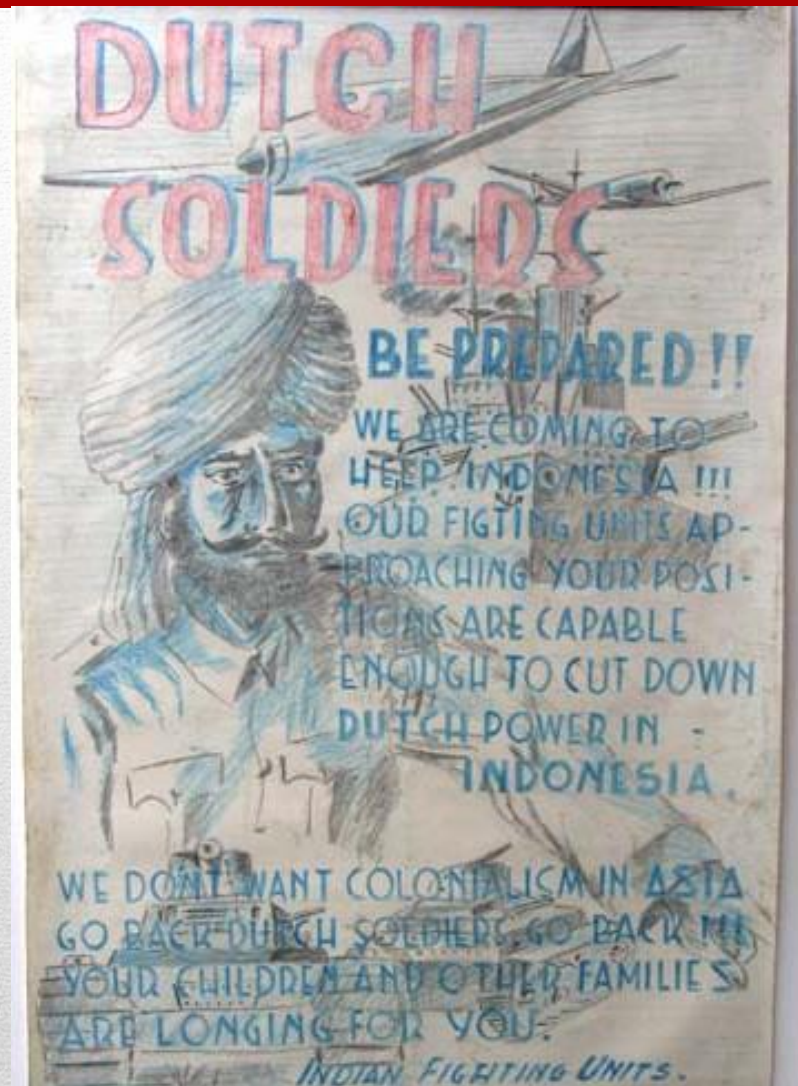 DUTCH
SOLDIERS
BE PREPARED!!
WE ARE COMING TO
HELP INDONESIA!!!
OUR FIGTING UNITS AP-
PROACHING YOUR POSI-
TIONS ARE CAPABLE
ENOUGH TO CUT DOWN
DUTCH POWER IN -
INDONESIA.
WE DONT WANT COLONIALISM IN ASIA
GO BACK DUTCH SOLDIERS, GO BACK !!!
YOUR CHILDREN AND OTHER FAMILIES
ARE LONGING FOR YOU.
INDIAN FIGHTING UNITS.